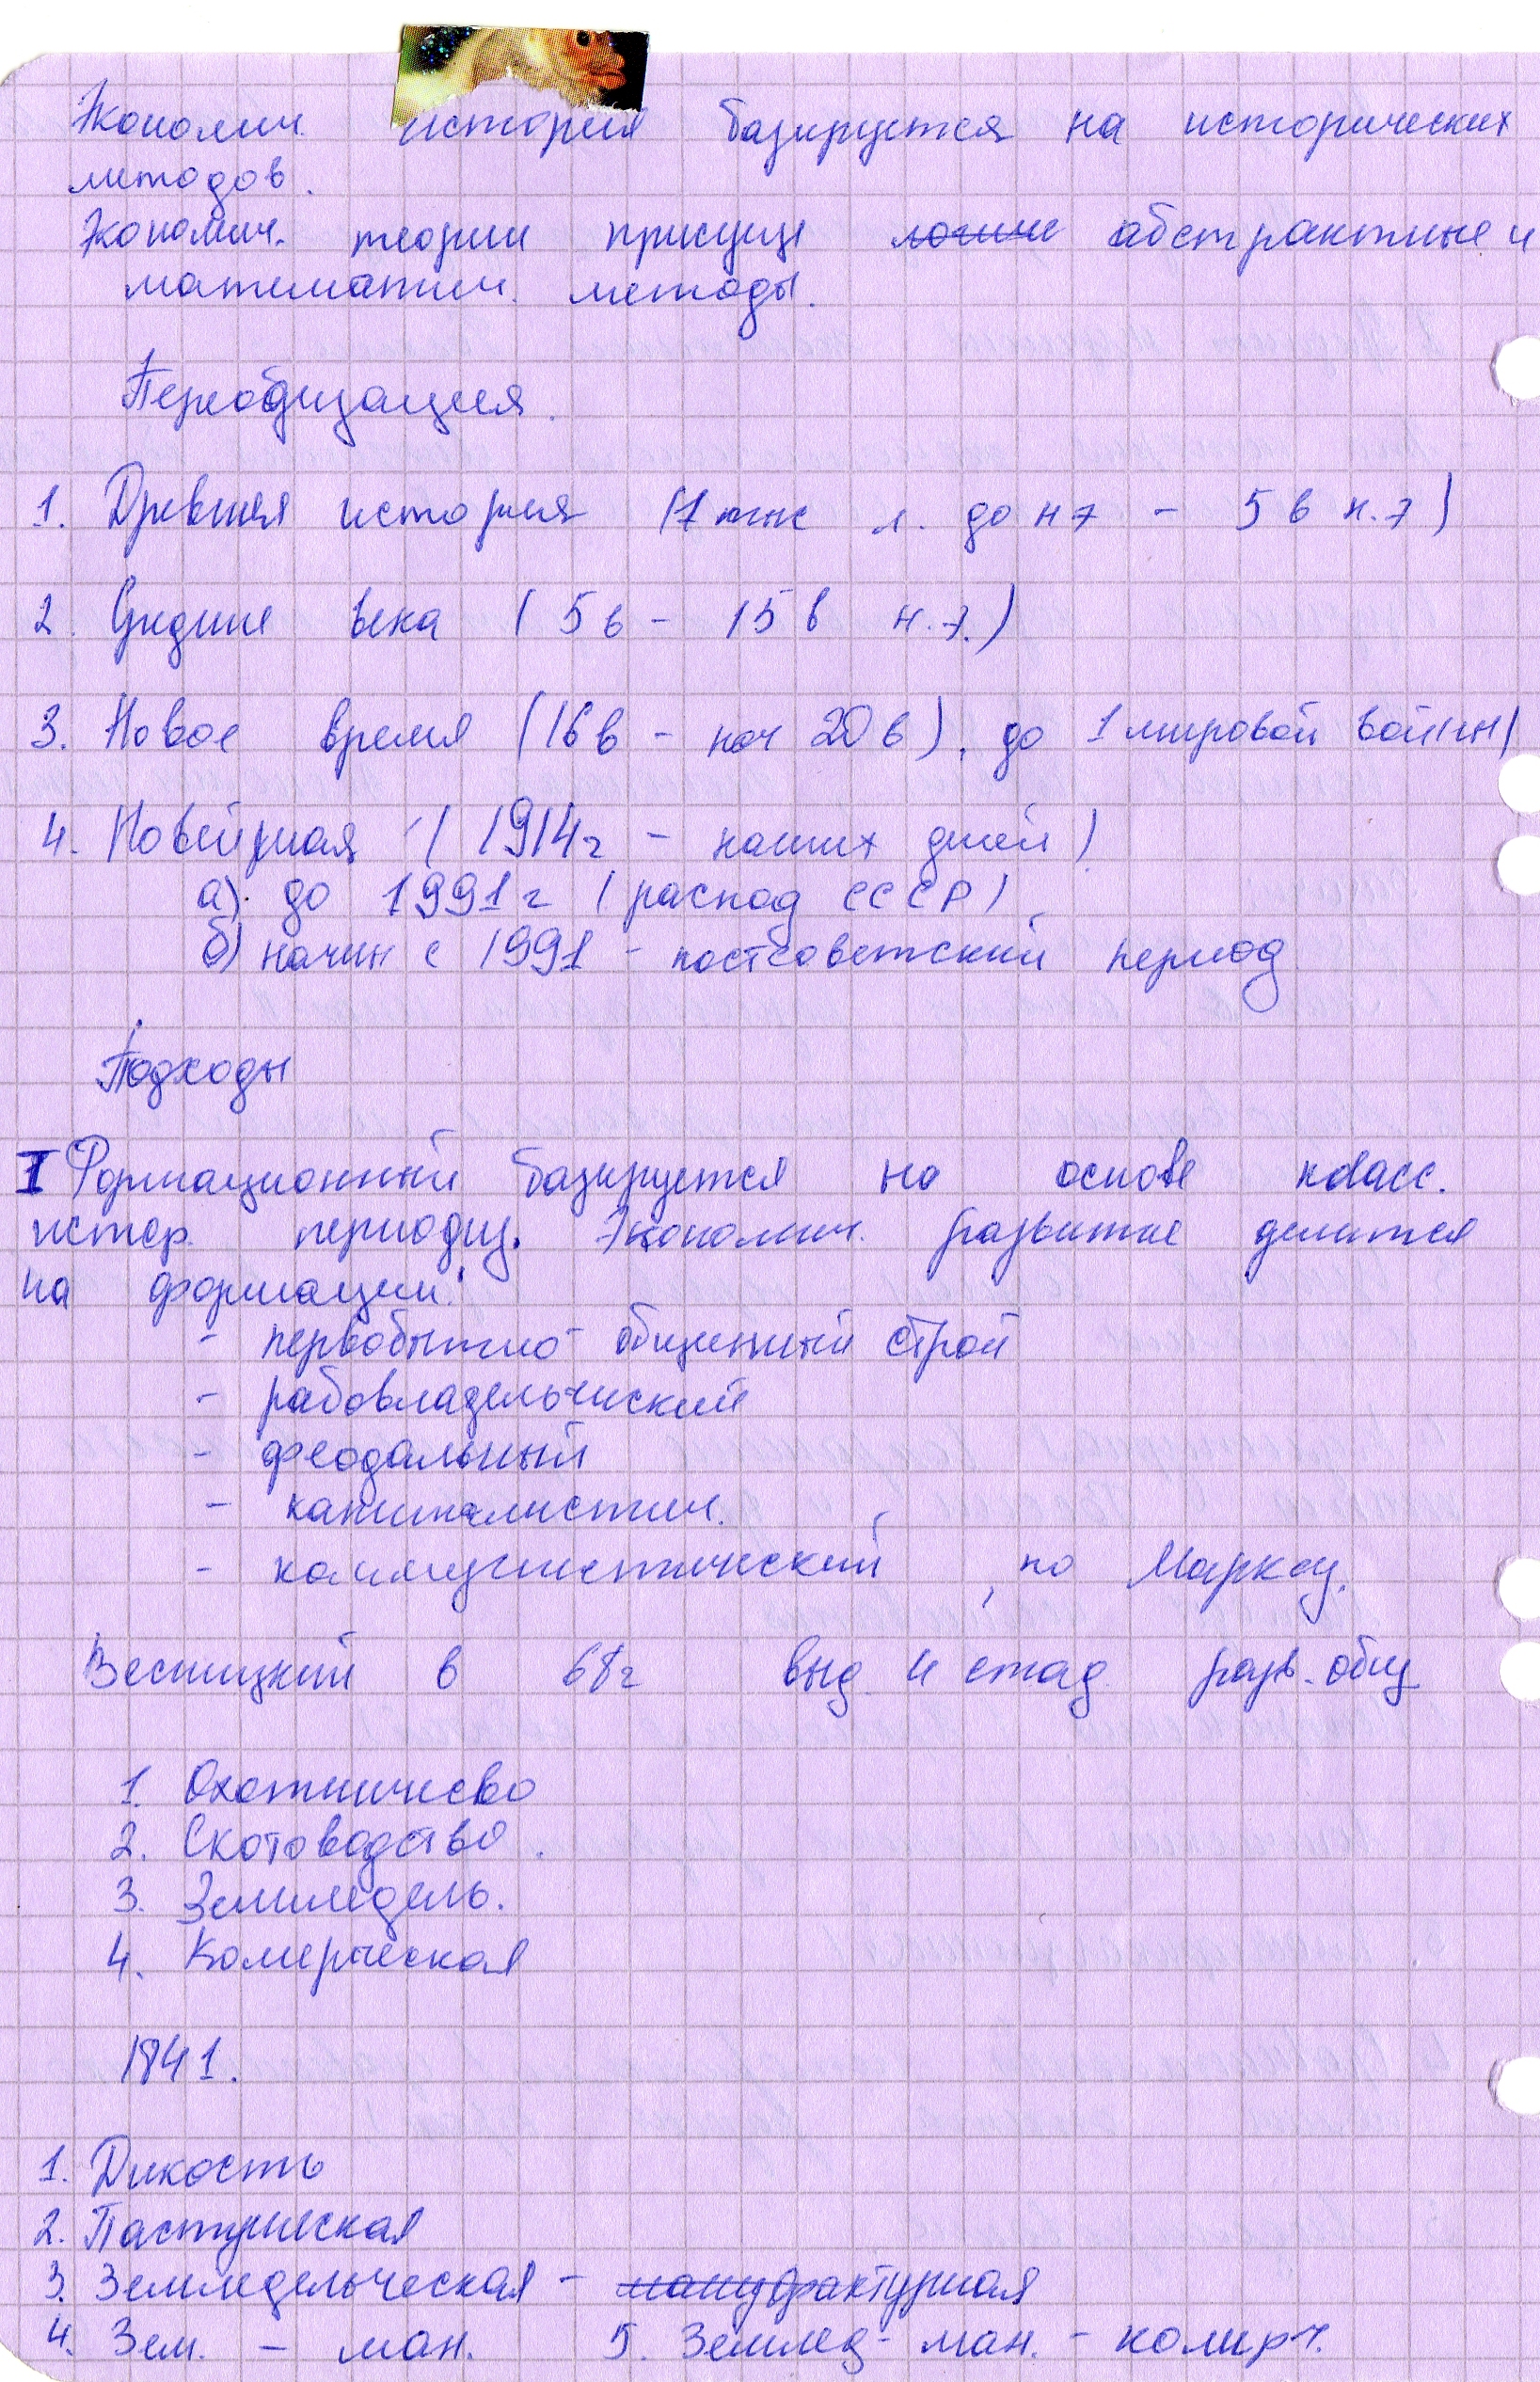 Экономич. история базируется на исторических
методов.
Экономич. теории присущи абстрактные и
математич. методы.
Переодизация.
1. Древняя история (7 тыс л. до н э - 5 в н.э)
2. Средние века (5 в - 15 в н.э.)
3. Новое время (16 в - нач 20 в), до 1 мировой войны)
4. Новейшая (1914 г - наших дней)
а). до 1991 г (распад СССР)
б) начин с 1991 - постсоветский период
Подходы
I Формационный базируется на основе класс.
истор. периодиз. Экономич. развитие делится
на формации:
- первобытно-общинный строй
- рабовладельчиский
- феодальный
- капиталистич.
- коммунистический, по Марксу.
в 68 г выд. 4 стад. разв. общ
1. Охотничево
2. Скотоводство.
3. Земледель.
4. Комерческая
1841.
1. Дикость
2. Пастушеская
3. Земледельческая - мануфактурная
4. Зем. - ман. 5. Землед - ман. - комерч.